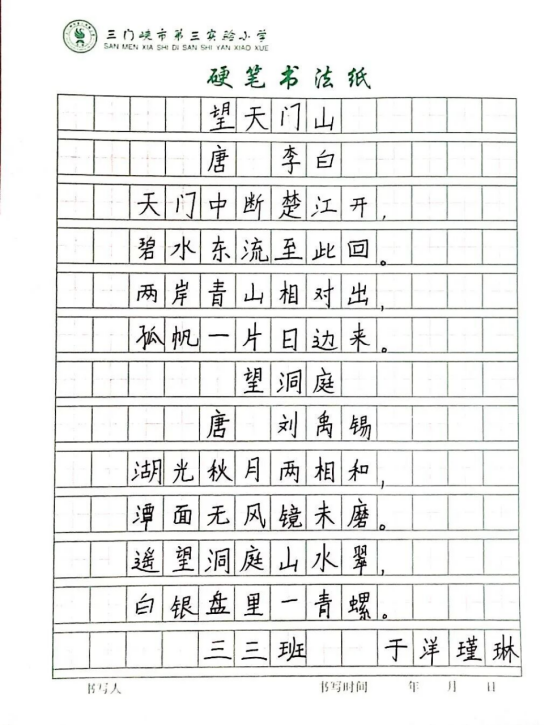 三门峡市第三实验小学
SAN MEN XIA SHI DI SAN SHI YAN XIAO XUE
硬笔书法纸
望天门山
唐 李白
天门中断楚江开，
碧水东流至此回。
两岸青山相对出，
孤帆一片日边来。
望洞庭
唐 刘禹锡
湖光秋月两相和，
潭面无风镜未磨。
遥望洞庭山水翠，
白银盘里一青螺。
三三班 于洋瑾琳
书写人 书写时间 年 月 日